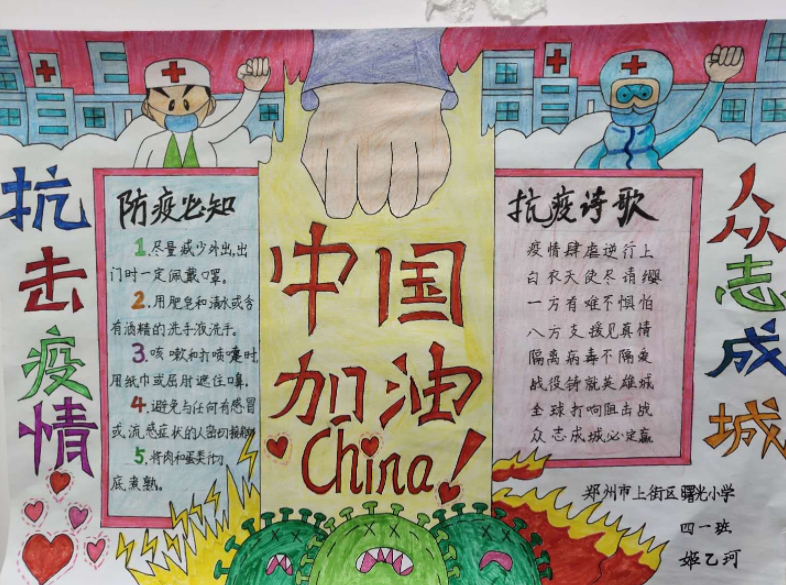 抗击疫情
防疫必知
1.尽量减少外出,出
门时一定佩戴口罩。
2.用肥皂和清水或含
有酒精的洗手液洗手。
3.咳嗽和打喷嚏时,
用纸巾或屈肘遮住口鼻。
4.避免与任何有感冒
或流感症状的人密切接触
5.将肉和蛋类彻
底煮熟。
中国
加油
China!
抗疫诗歌
疫情肆虐逆行上
白衣天使尽请缨
一方有难不惧怕
八方支援见真情
隔离病毒不隔爱
战役铸就英雄城
全球打响阻击战
众志成城必定赢
众志成城
郑州市上街区曙光小学
四一班
姬乙珂